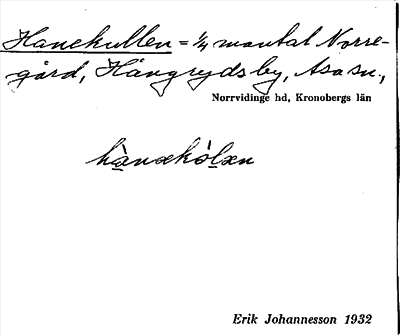 Hanekullen = 1/4 mantal Norre-
gård, Hängryds by, Asa sn.,
Norrvidinge hd, Kronobergs län
hànækólæn
Erik Johannesson 1932